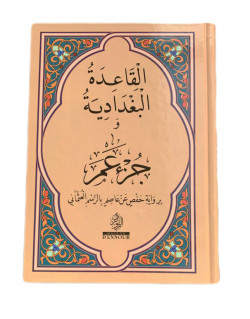 القَاعِدَةُ
البَغْدَادِيَةُ
وَ
جُزْءُ عَمَّ
بِرِوَايَةِ حَفْصٍ عَنْ عَاصِمٍ بِالرَّسْمِ العُثْمَانِي
ENNOUR